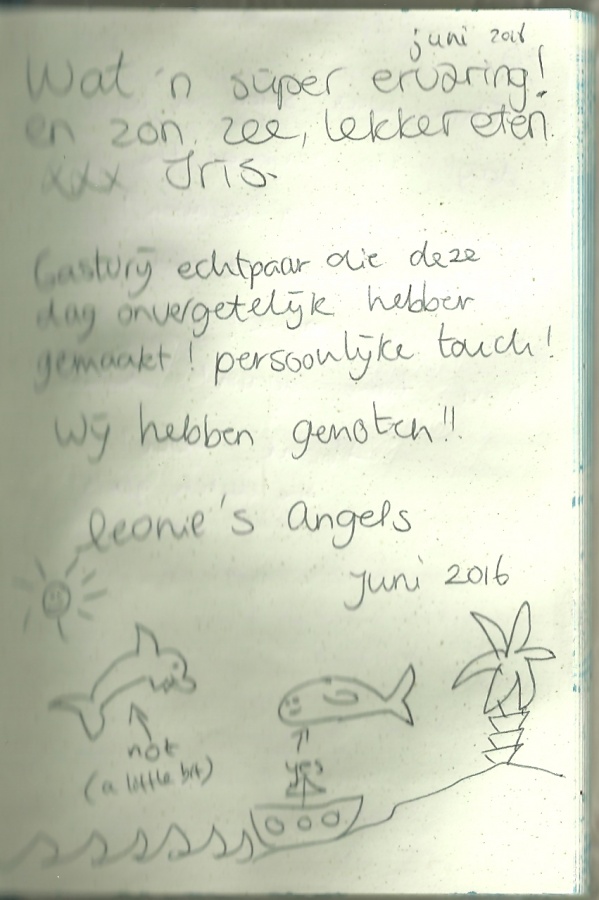 juni 2016
Wat 'n super ervaring!
en zon, zee, lekker eten
xxx Iris.
Gastvrij echtpaar die deze
dag onvergetelijk hebben
gemaakt! persoonlijke touch!
Wij hebben genoten!!
leonie's angels
juni 2016
not
(a little bit)